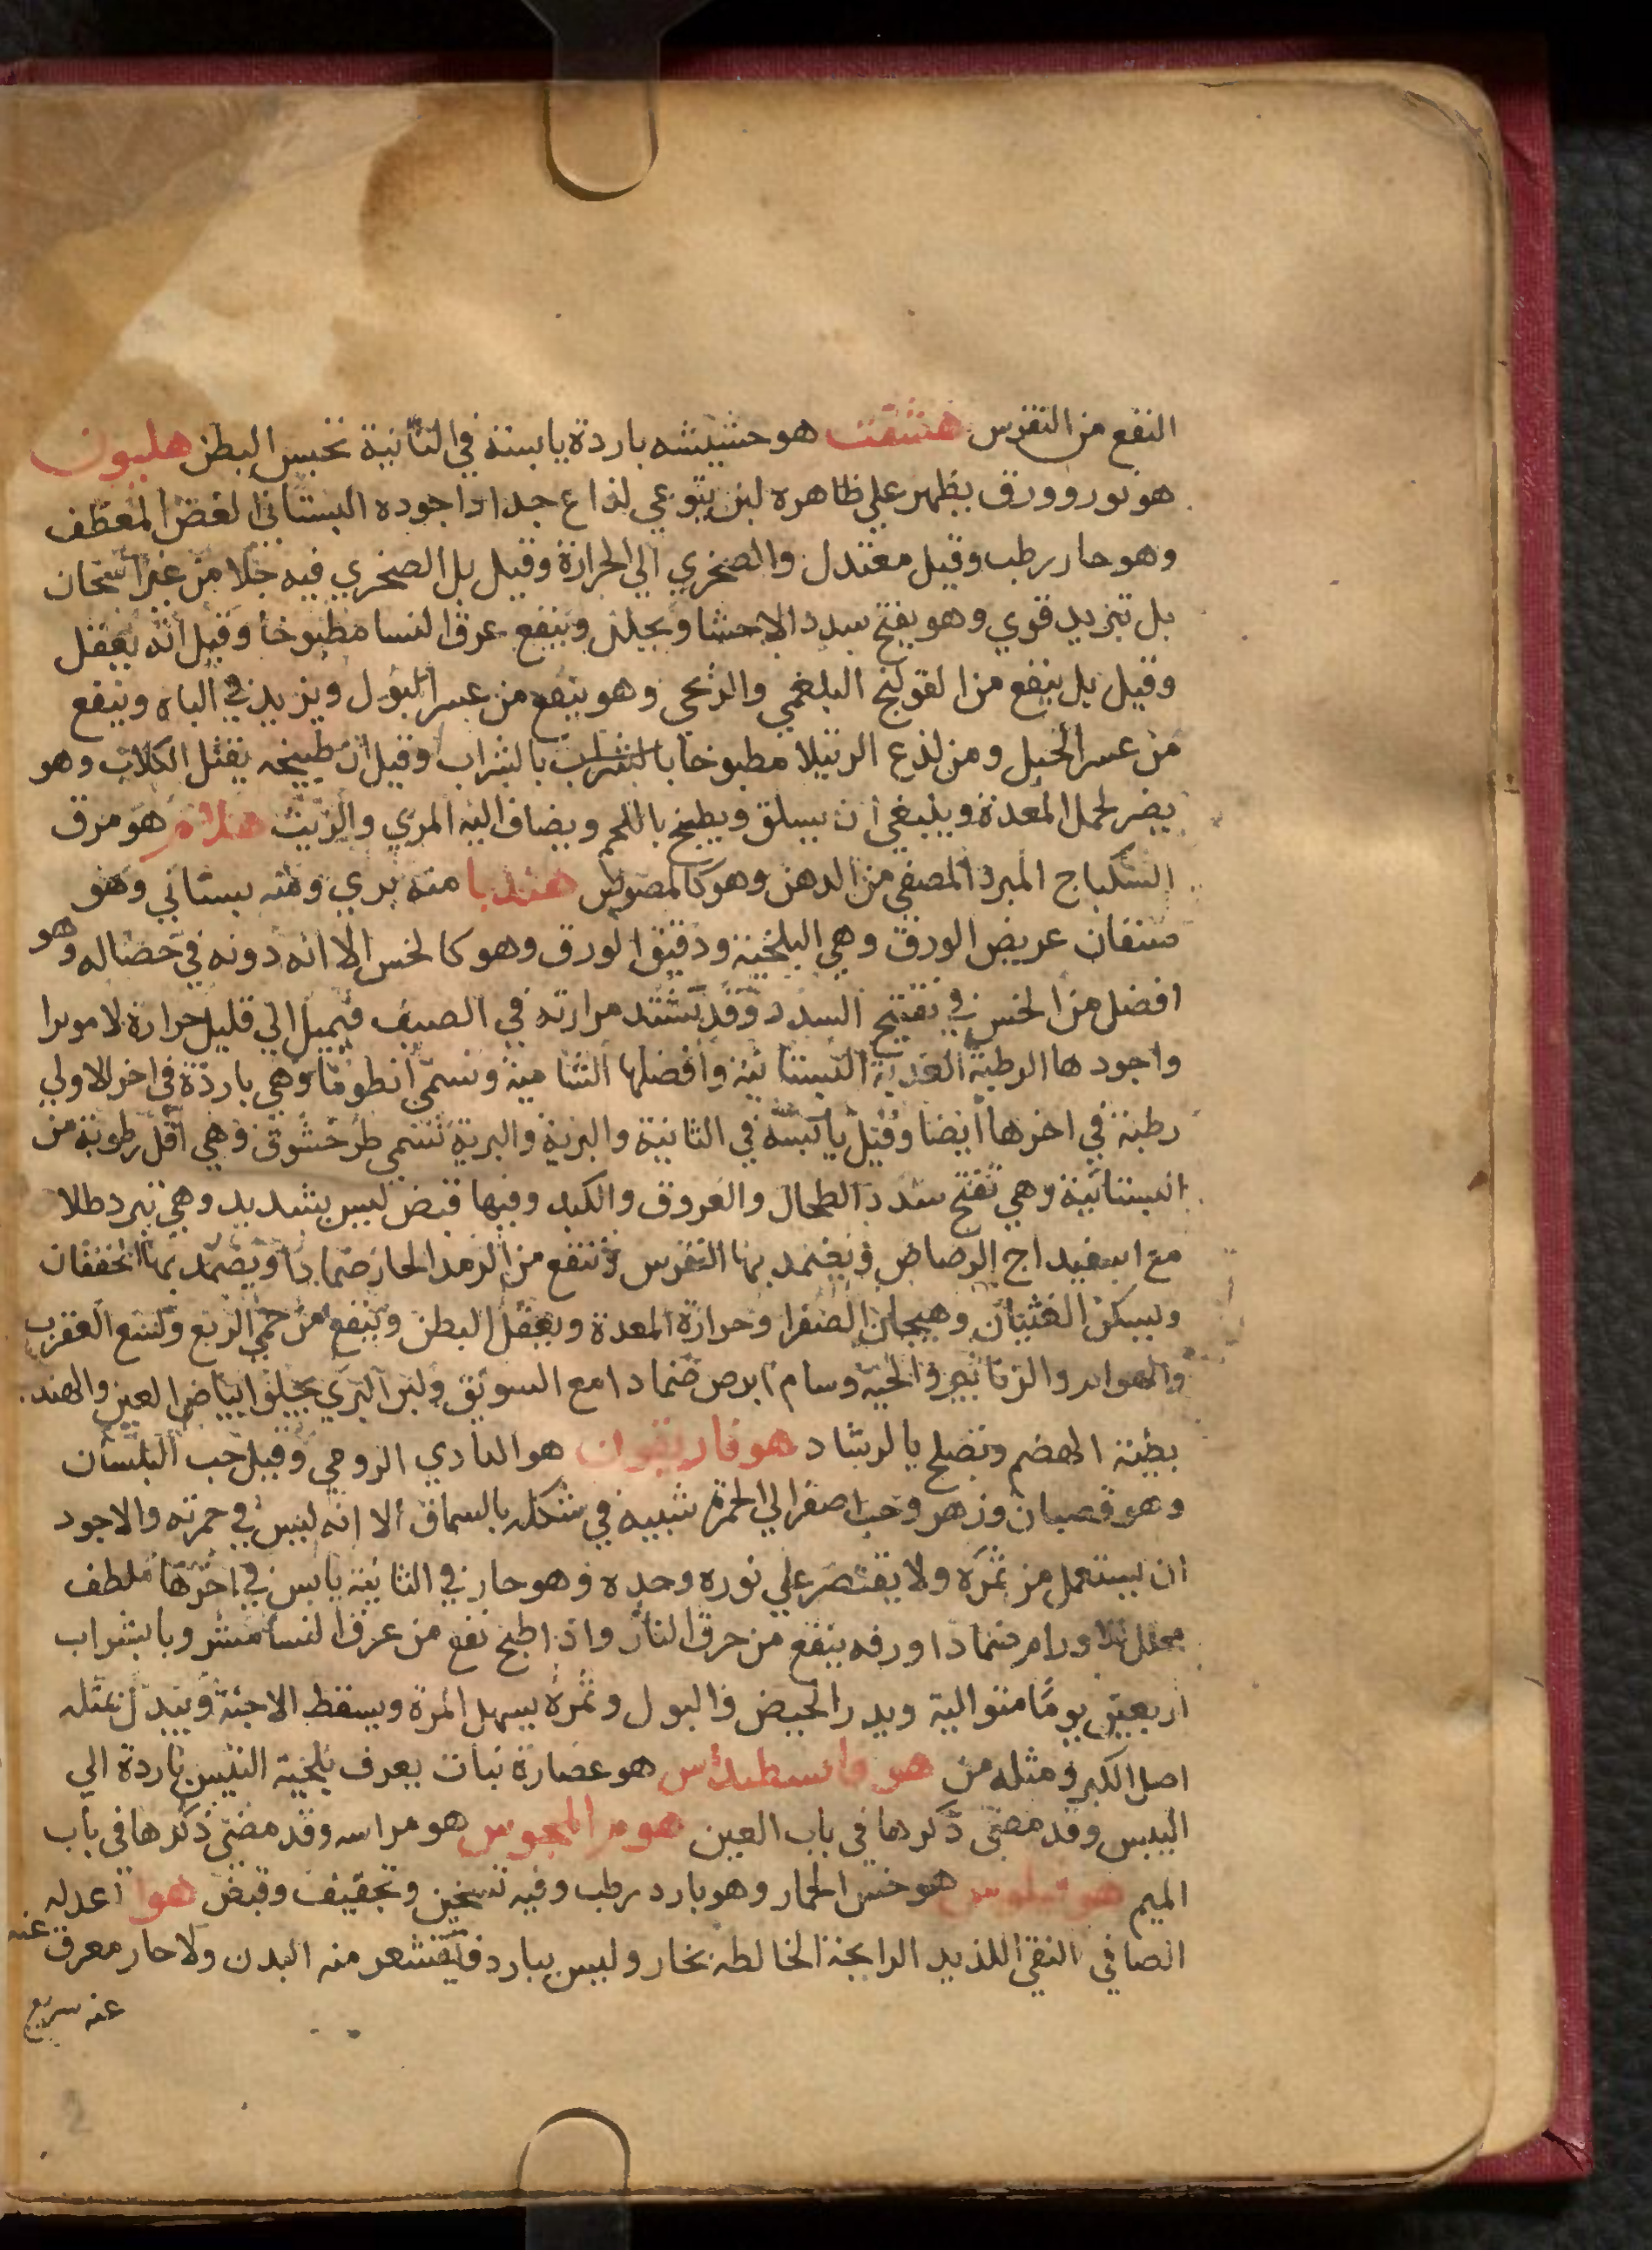 النفع من النقرس هشقت هو حشيشه باردة يابسة في الثانية تحبس البطن هليون
هو نور وورق يظهر علي ظاهره لبن يتوعي لذاع جدا واجوده البستاني الغض المعطف
وهو حار رطب وقيل معتدل والصخري الي الحرارة وقيل بل الصخري فيه جلا من غير اسخان
بل تبريد قوي وهو يفتح سدد الاحشا ويحلل وينفع عرق النسا مطبوخا وقيل انه يعقل
وقيل بل ينفع من القولنج البلغمي والريحي وهو ينفع من عسر البول ويزيد في الباه وينفع
من عسر الحبل ومن لذع الرتيلا مطبوخا بالشراب بالشراب وقيل ان طبيخه يقتل الكلاب وهو
يضر لحمل المعدة وينبغي ان يسلق ويطبخ باللحم ويضاف اليه المري والزيت هلام هو مرق
السكباج المبرد المصفي من الدهن وهو كالمصوص هندبا منه بري ومنه بستاني وهو
صنفان عريض الورق وهي البلخية ودقيق الورق وهو كالخس الا انه دونه في خصاله وهو
افضل من الخس في تفتيح السدد وقد تشتد مرارته في الصيف فيميل الي قليل حرارة لا موثرا
واجودها الرطبة العذبة البستانية وافضلها الشامية وتسمي انطوبيا وهي باردة في اخر الاولي
رطبة في اخرها ايضا وقيل يابسه في الثانية والبرية والبرية تسمي طرخشوق وهي اقل رطوبة من
البستانية وهي تفتح سدد الطحال والعروق والكبد وفيها قبض ليس بشديد وهي تبرد طلا
مع اسفيداج الرصاص ويضمد بها النقرس وتنفع من الرمد الحار ضمادا ويضمد بها الخفقان
ويسكن الغثيان وهيجان الصفرا وحرارة المعدة ويعقل البطن وينفع من حمي الربع ولسع العقرب
والهوام والزنابير والحية وسام ابرص ضمادا مع السويق ولبن البري يجلوا بياض العين والهند.
بطية الهضم وتصلح بالرشاد هوفاريقون هو الدادي الرومي وقيل حب البلسان
وهو قضبان وزهر وحب اصفر الي الحمرة شبيه في شكله بالسماق الا انه ليس في حمرته والاجود
ان يستعمل من ثمره ولا يقتصر علي نوره وحده وهو حار في الثانية يابس في اخرها ملطف
محلل للاورام ضمادا ورقه ينفع من حرق النار واذا طبخ نفع من عرق النسا مشروبا بشراب
اربعين يوما متوالية ويدر الحيض والبول وثمره يسهل المرة ويسقط الاجنة ويبدل بمثله
اصل الكبر ومثله من هيوفاسطيداس هو عصارة نبات يعرف بلحية التيس باردة الي
اليبس وقد مضي ذكرها في باب العين هوم المجوس هو مرانيه وقد مضي ذكرها في باب
الميم هوقيلوس هو خس الحمار وهو بارد رطب وفيه تسخين وتجفيف وقبض هوا اعدله
الصافي النقي اللذيذ الرايحة الخالطه بخار وليس ببارد فيقشعر منه البدن ولا حار معرق عنه
عنه سريع